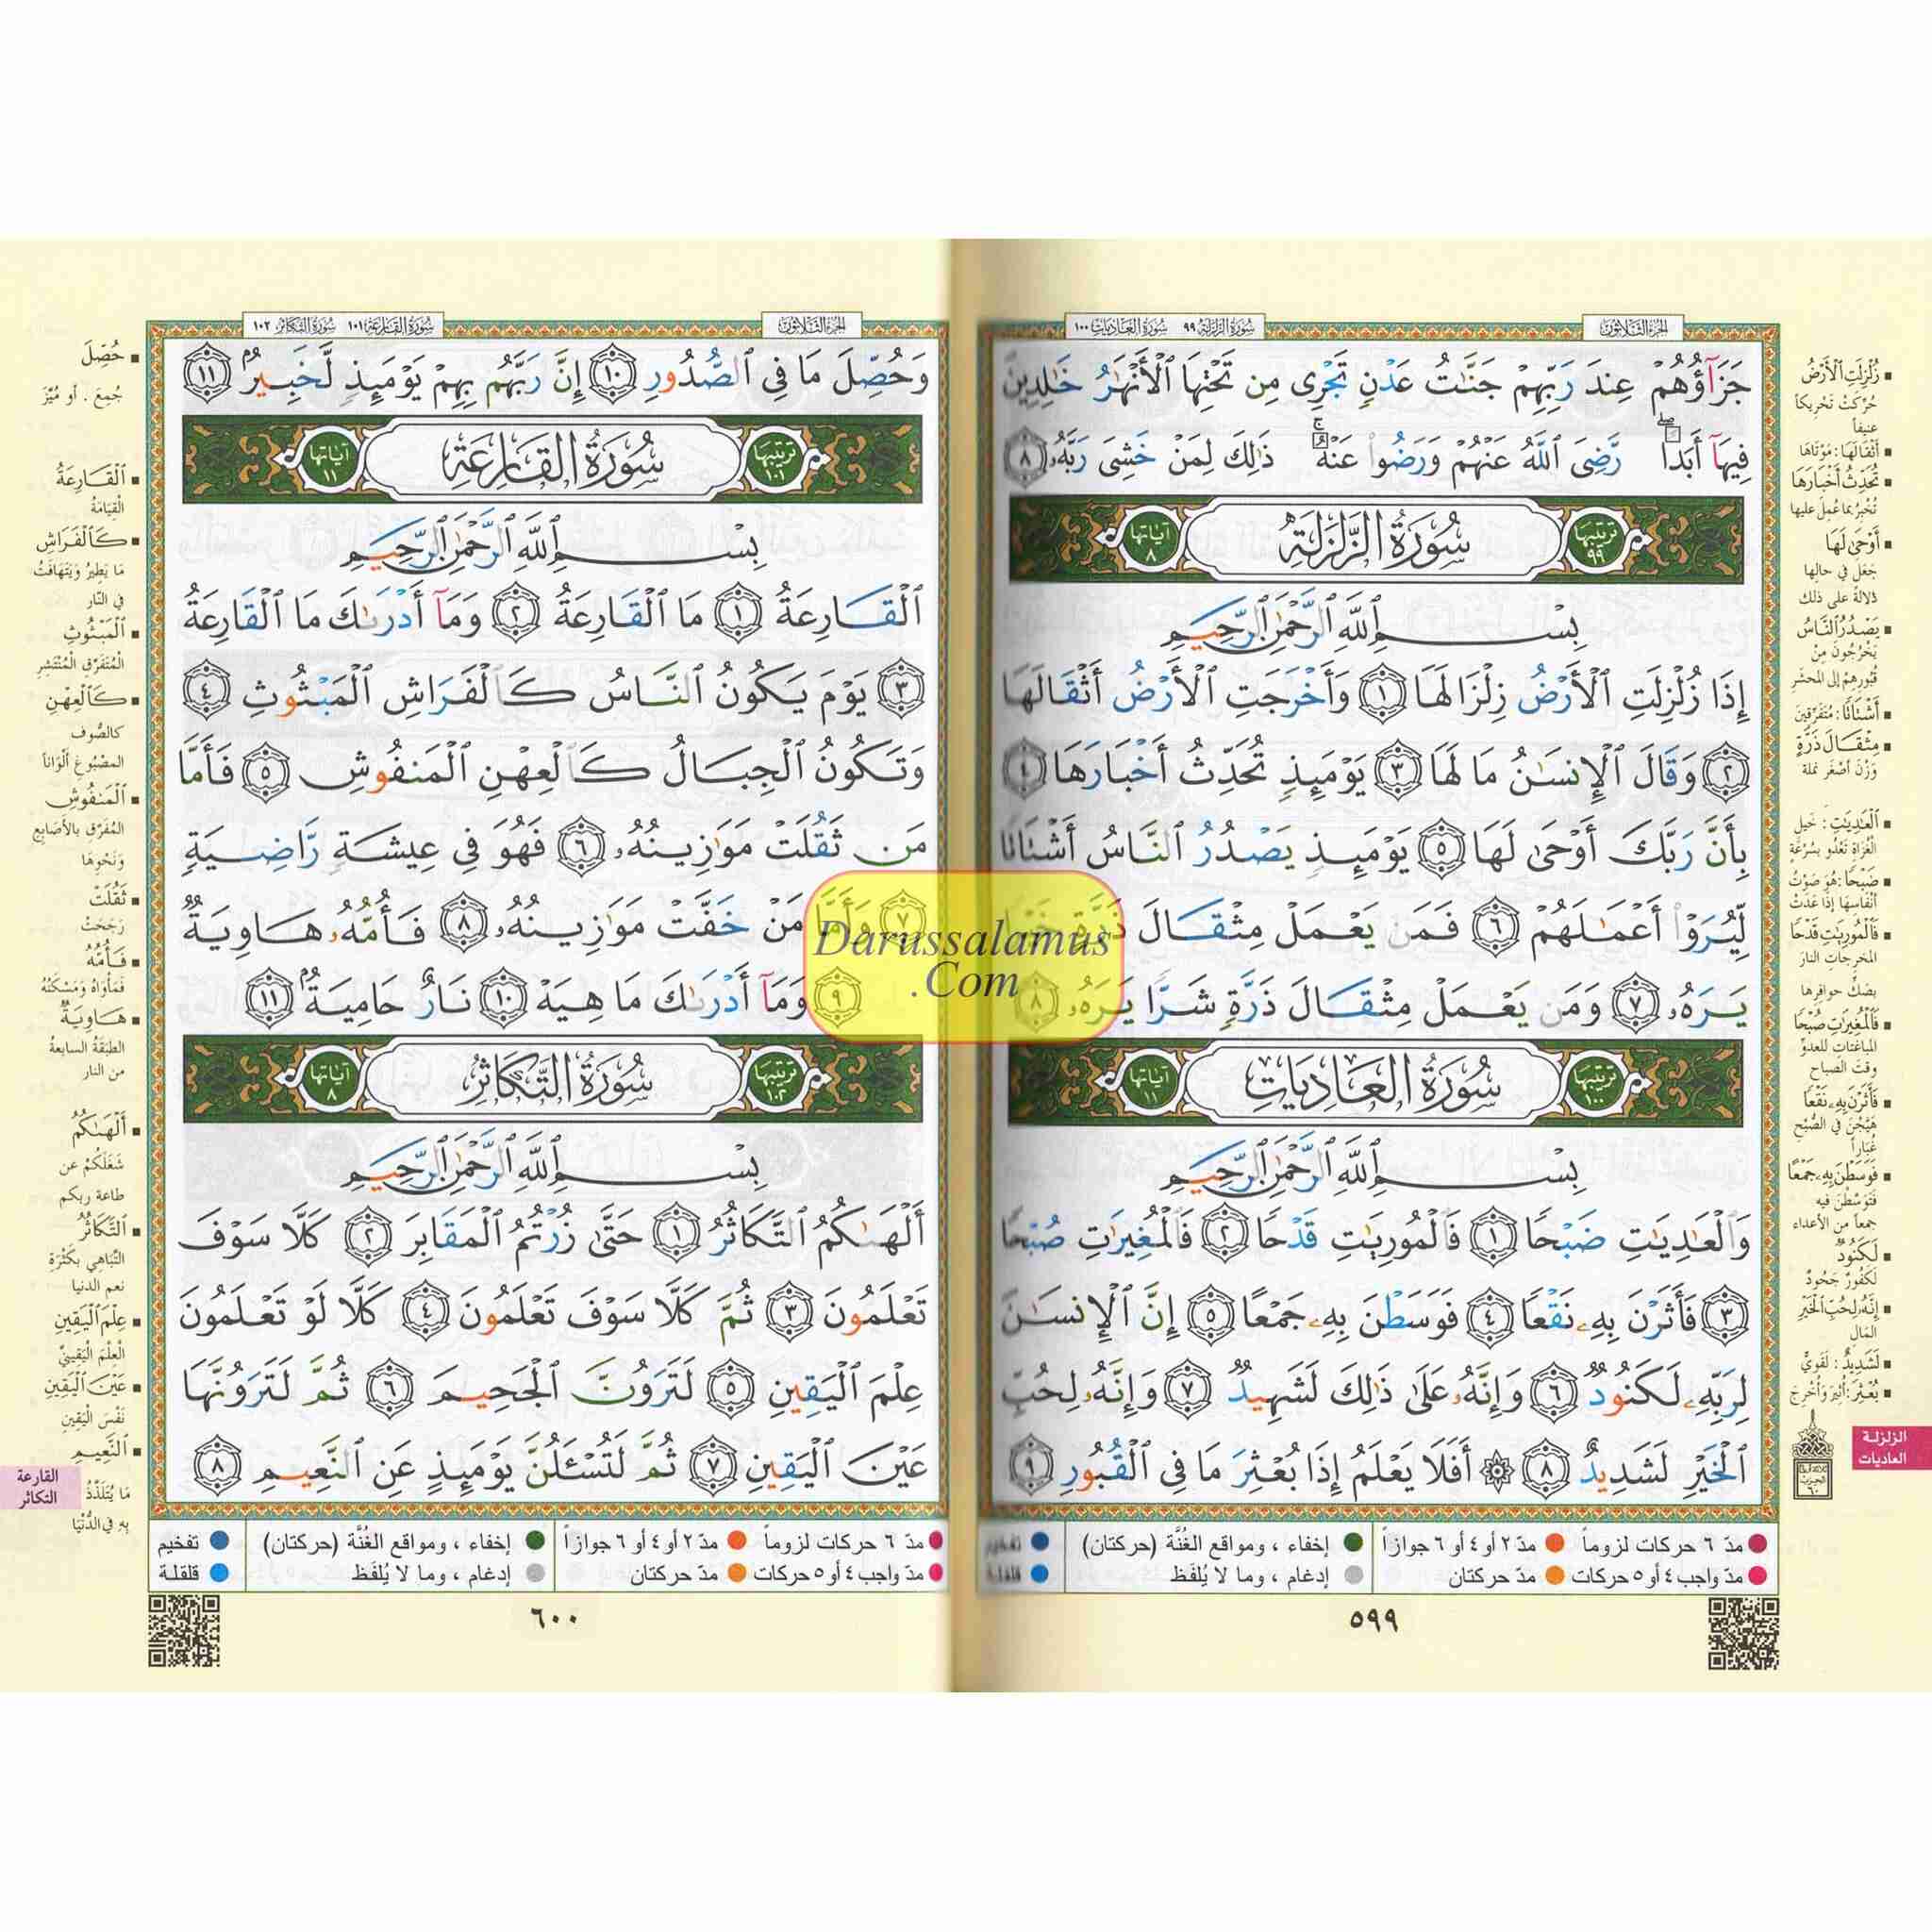 الجزء الثلاثون
سورة الزلزلة ٩٩ سورة العاديات ١٠٠
جَزَآؤُهُمْ عِندَ رَبِّهِمْ جَنَّٰتُ عَدْنٍ تَجْرِى مِن تَحْتِهَا ٱلْأَنْهَٰرُ خَٰلِدِينَ
فِيهَآ أَبَدًا ۖ رَّضِىَ ٱللَّهُ عَنْهُمْ وَرَضُوا۟ عَنْهُ ۚ ذَٰلِكَ لِمَنْ خَشِىَ رَبَّهُۥ ٨
ترتيبها ٩٩ سورة الزلزلة آياتها ٨
بِسْمِ ٱللَّهِ ٱلرَّحْمَٰنِ ٱلرَّحِيمِ
إِذَا زُلْزِلَتِ ٱلْأَرْضُ زِلْزَالَهَا ١ وَأَخْرَجَتِ ٱلْأَرْضُ أَثْقَالَهَا
٢ وَقَالَ ٱلْإِنسَٰنُ مَا لَهَا ٣ يَوْمَئِذٍ تُحَدِّثُ أَخْبَارَهَا ٤
بِأَنَّ رَبَّكَ أَوْحَىٰ لَهَا ٥ يَوْمَئِذٍ يَصْدُرُ ٱلنَّاسُ أَشْتَاتًا
لِّيُرَوْا۟ أَعْمَٰلَهُمْ ٦ فَمَن يَعْمَلْ مِثْقَالَ ذَرَّةٍ خَيْرًا
يَرَهُۥ ٧ وَمَن يَعْمَلْ مِثْقَالَ ذَرَّةٍ شَرًّا يَرَهُۥ ٨
ترتيبها ١٠٠ سورة العاديات آياتها ١١
بِسْمِ ٱللَّهِ ٱلرَّحْمَٰنِ ٱلرَّحِيمِ
وَٱلْعَٰدِيَٰتِ ضَبْحًا ١ فَٱلْمُورِيَٰتِ قَدْحًا ٢ فَٱلْمُغِيرَٰتِ صُبْحًا
٣ فَأَثَرْنَ بِهِۦ نَقْعًا ٤ فَوَسَطْنَ بِهِۦ جَمْعًا ٥ إِنَّ ٱلْإِنسَٰنَ
لِرَبِّهِۦ لَكَنُودٌ ٦ وَإِنَّهُۥ عَلَىٰ ذَٰلِكَ لَشَهِيدٌ ٧ وَإِنَّهُۥ لِحُبِّ
ٱلْخَيْرِ لَشَدِيدٌ ٨ ۞ أَفَلَا يَعْلَمُ إِذَا بُعْثِرَ مَا فِى ٱلْقُبُورِ ٩
زُلْزِلَتِ ٱلْأَرْضُ
حُرِّكَتْ تَحْرِيكاً
عنيفاً
أَثْقَالَهَا : مَوْتَاهَا
تُحَدِّثُ أَخْبَارَهَا
تُخْبِرُ بما عُمِلَ عليها
أَوْحَىٰ لَهَا
جَعَلَ في حالِها
دَلالةً على ذلك
يَصْدُرُ ٱلنَّاسُ
يَخْرُجُونَ مِنْ
قُبورِهِمْ إلى المحشَرِ
أَشْتَاتًا : مُتَفَرِّقِينَ
مِثْقَالَ ذَرَّةٍ
وَزْنَ أصْغَرِ نملة
ٱلْعَٰدِيَٰتِ : خَيلِ
الْغُزَاةِ تَعْدُو بسُرْعَةٍ
ضَبْحًا : هُوَ صَوْتُ
أَنْفَاسِهَا إذَا عَدَتْ
فَٱلْمُورِيَٰتِ قَدْحًا
المخرجاتِ النارَ
بصَكِّ حوافِرها
فَٱلْمُغِيرَٰتِ صُبْحًا
المباغتاتِ للعدوِّ
وقتَ الصباح
فَأَثَرْنَ بِهِۦ نَقْعًا
هَيَّجْنَ في الصُّبْحِ
غُبَاراً
فَوَسَطْنَ بِهِۦ جَمْعًا
فَتَوَسَّطْنَ فيه
جمعاً من الأعداء
لَكَنُودٌ
لَكَفُورٌ جَحُودٌ
إِنَّهُۥ لِحُبِّ ٱلْخَيْرِ
المَالِ
لَشَدِيدٌ : لَقَوِيٌّ
بُعْثِرَ : أُثِيرَ وَأُخْرِجَ
الزلزلة
العاديات
مدّ ٦ حركات لزوماً مدّ ٢ أو ٤ أو ٦ جوازاً إخفاء ، ومواقع الغُنَّة (حركتان) تفخيم
مدّ واجب ٤ أو ٥ حركات مدّ حركتان إدغام ، وما لا يُلفَظ قلقلة
٥٩٩
الجزء الثلاثون
سورة القارعة ١٠١ سورة التكاثر ١٠٢
وَحُصِّلَ مَا فِى ٱلصُّدُورِ ١٠ إِنَّ رَبَّهُم بِهِمْ يَوْمَئِذٍ لَّخَبِيرٌۢ ١١
ترتيبها ١٠١ سورة القارعة آياتها ١١
بِسْمِ ٱللَّهِ ٱلرَّحْمَٰنِ ٱلرَّحِيمِ
ٱلْقَارِعَةُ ١ مَا ٱلْقَارِعَةُ ٢ وَمَآ أَدْرَىٰكَ مَا ٱلْقَارِعَةُ
٣ يَوْمَ يَكُونُ ٱلنَّاسُ كَٱلْفَرَاشِ ٱلْمَبْثُوثِ ٤
وَتَكُونُ ٱلْجِبَالُ كَٱلْعِهْنِ ٱلْمَنفُوشِ ٥ فَأَمَّا
مَن ثَقُلَتْ مَوَٰزِينُهُۥ ٦ فَهُوَ فِى عِيشَةٍ رَّاضِيَةٍ
٧ وَأَمَّا مَنْ خَفَّتْ مَوَٰزِينُهُۥ ٨ فَأُمُّهُۥ هَاوِيَةٌ
٩ وَمَآ أَدْرَىٰكَ مَا هِيَهْ ١٠ نَارٌ حَامِيَةٌۢ ١١
ترتيبها ١٠٢ سورة التكاثر آياتها ٨
بِسْمِ ٱللَّهِ ٱلرَّحْمَٰنِ ٱلرَّحِيمِ
أَلْهَىٰكُمُ ٱلتَّكَاثُرُ ١ حَتَّىٰ زُرْتُمُ ٱلْمَقَابِرَ ٢ كَلَّا سَوْفَ
تَعْلَمُونَ ٣ ثُمَّ كَلَّا سَوْفَ تَعْلَمُونَ ٤ كَلَّا لَوْ تَعْلَمُونَ
عِلْمَ ٱلْيَقِينِ ٥ لَتَرَوُنَّ ٱلْجَحِيمَ ٦ ثُمَّ لَتَرَوُنَّهَا
عَيْنَ ٱلْيَقِينِ ٧ ثُمَّ لَتُسْـَٔلُنَّ يَوْمَئِذٍ عَنِ ٱلنَّعِيمِ ٨
حُصِّلَ
جُمِعَ . أو مُيِّزَ
ٱلْقَارِعَةُ
الْقِيَامَةُ
كَٱلْفَرَاشِ
مَا يَطِيرُ وَيَتَهَافَتُ
في النَّار
ٱلْمَبْثُوثِ
الْمُتَفَرِّقِ الْمُنْتَشِرِ
كَٱلْعِهْنِ
كالصُّوف
المصْبُوغِ أَلْوَاناً
ٱلْمَنفُوشِ
المُفَرَّقِ بالأَصَابِع
وَنَحْوِهَا
ثَقُلَتْ
رَجَحَتْ
فَأُمُّهُۥ
فَمَأْوَاهُ وَمَسْكَنُهُ
هَاوِيَةٌ
الطبَقَةُ السابعةُ
من النار
أَلْهَىٰكُمُ
شَغَلَكُمْ عن
طاعة ربكم
ٱلتَّكَاثُرُ
التَّبَاهِي بكَثْرَةِ
نعم الدنيا
عِلْمَ ٱلْيَقِينِ
الْعِلْمَ الْيَقِينيَّ
عَيْنَ ٱلْيَقِينِ
نَفْسَ الْيَقِينِ
ٱلنَّعِيمِ
مَا يُتَلَذَّذُ
بِهِ في الدُّنْيَا
القارعة
التكاثر
مدّ ٦ حركات لزوماً مدّ ٢ أو ٤ أو ٦ جوازاً إخفاء ، ومواقع الغُنَّة (حركتان) تفخيم
مدّ واجب ٤ أو ٥ حركات مدّ حركتان إدغام ، وما لا يُلفَظ قلقلة
٦٠٠
Darussalamus
.Com